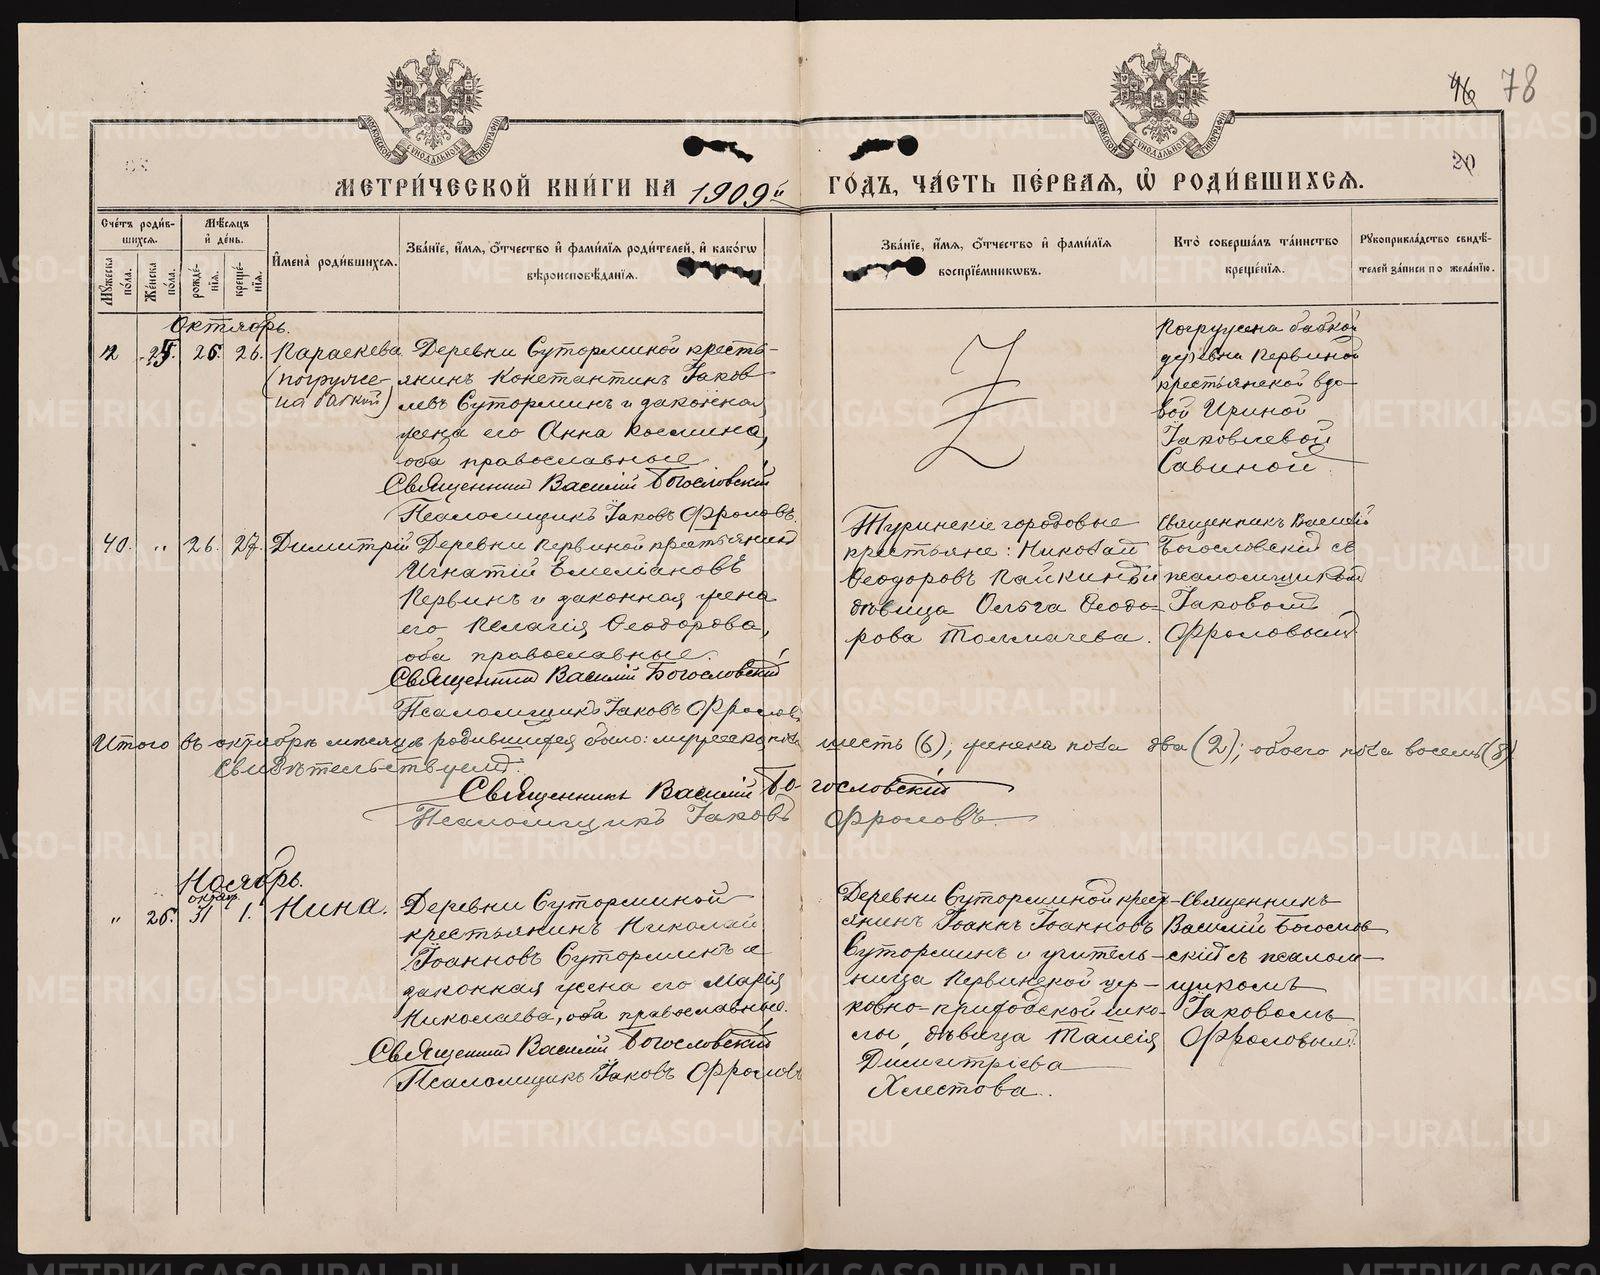 МОСКОВСКОЙ СѴНОДАЛЬНОЙ ТИПОГРАФІИ
МОСКОВСКОЙ СѴНОДАЛЬНОЙ ТИПОГРАФІИ
78
20
МЕТРИ́ЧЕСКОЙ КНИ́ГИ НА 1909й ГО́ДЪ, ЧА́СТЬ ПЕ́РВАЯ, Ѡ РОДИ́ВШИХСЯ.
Сче́тъ роди́вшихся.
Мꙋ́жеска по́ла.
Же́нска по́ла.
Мѣ́сяцъ и́ де́нь.
рожде́нїя.
креще́нїя.
И҆мена̀ роди́вшихся.
Зва́нїе, и҆́мя, ѻ҆́тчество и҆ фами́лїя роди́телей, и҆ како́гѡ
вѣроисповѣ́данїя.
Зва́нїе, и҆́мя, ѻ҆́тчество и҆ фами́лїя
воспрїе́мникѡвъ.
Кто̀ соверша́лъ та́инство
креще́нїя.
Рꙋкоприкла́дство свидѣ́-
телей за́писи по жела́нїю.
Октябрь.
25. 26. Параскева
(погруже-
на бабкой)
Деревни Суторминой кресть-
янинъ Константинъ Іаков-
левъ Суторминъ и законная
жена его Анна Космина,
оба православные.
Священник Василій Богословскій
Псаломщикъ Іаковъ Фроловъ.
Погружена бабкой
деревни Первиной
крестьянской вдо-
вой Ириной
Іаковлевой
Савиной
40. „ 26. 27. Димитрій
Деревни Первиной крестьянинъ
Игнатій Емеліановъ
Первинъ и законная жена
его Пелагія Ѳеодорова,
оба православные.
Священник Василій Богословскій
Псаломщикъ Іаковъ Фроловъ
Туринскіе городовые
крестьяне: Николай
Ѳеодоровъ и
дѣвица Ольга Ѳеодо-
рова Толмачева.
Священникъ Василій
Богословскій съ
псаломщикомъ
Іаковомъ
Фроловымъ.
Итого въ октябрѣ мѣсяцѣ родившихся было: мужеска пола шесть (6), женска пола два (2); обоего пола восемь (8)
Свидѣтельствуемъ:
Священникъ Василій Богословскій
Псаломщикъ Іаковъ Фроловъ.
Ноябрь.
октяб.
„ 26. 31 1. Нина.
Деревни Суторминой
крестьянинъ Николай
Іоанновъ Суторминъ и
законная жена его Марія
Николаева, оба православные.
Священник Василій Богословскій
Псаломщикъ Іаковъ Фроловъ
Деревни Суторминой крест-
янинъ Іоаннъ Іоанновъ
Суторминъ и учитель-
ница Первинской цер-
ковно-приходской шко-
лы, дѣвица Таисія
Димитріева
Хлестова.
Священникъ
Василій Богослов-
скій съ псалом-
щикомъ
Іаковомъ
Фроловымъ.
METRIKI.GASO-URAL.RU